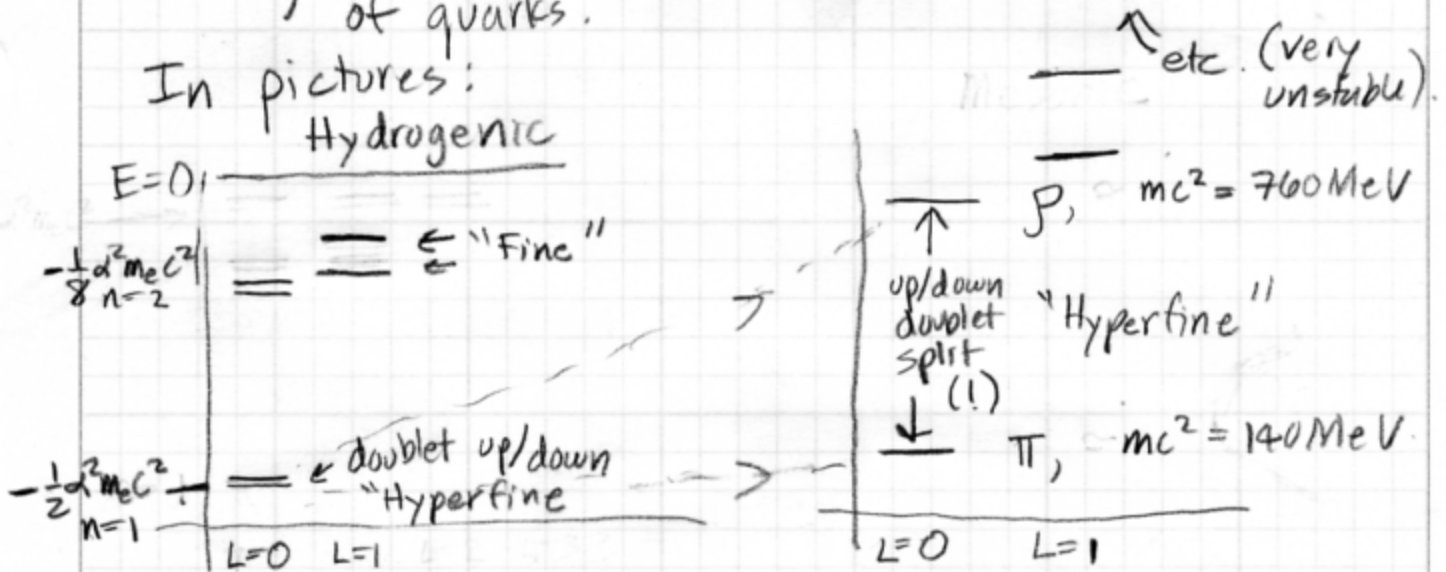 of quarks.
In pictures:
Hydrogenic
E=0
-1/8 α²mₑc²
n=2
← "Fine"
←
-1/2 α²mₑc²
n=1
doublet up/down
"Hyperfine
L=0 L=1
etc. (very
unstable).
ρ, mc² = 760 MeV
up/down
doublet
split
(!)
"Hyperfine"
π, mc² = 140 MeV
L=0 L=1